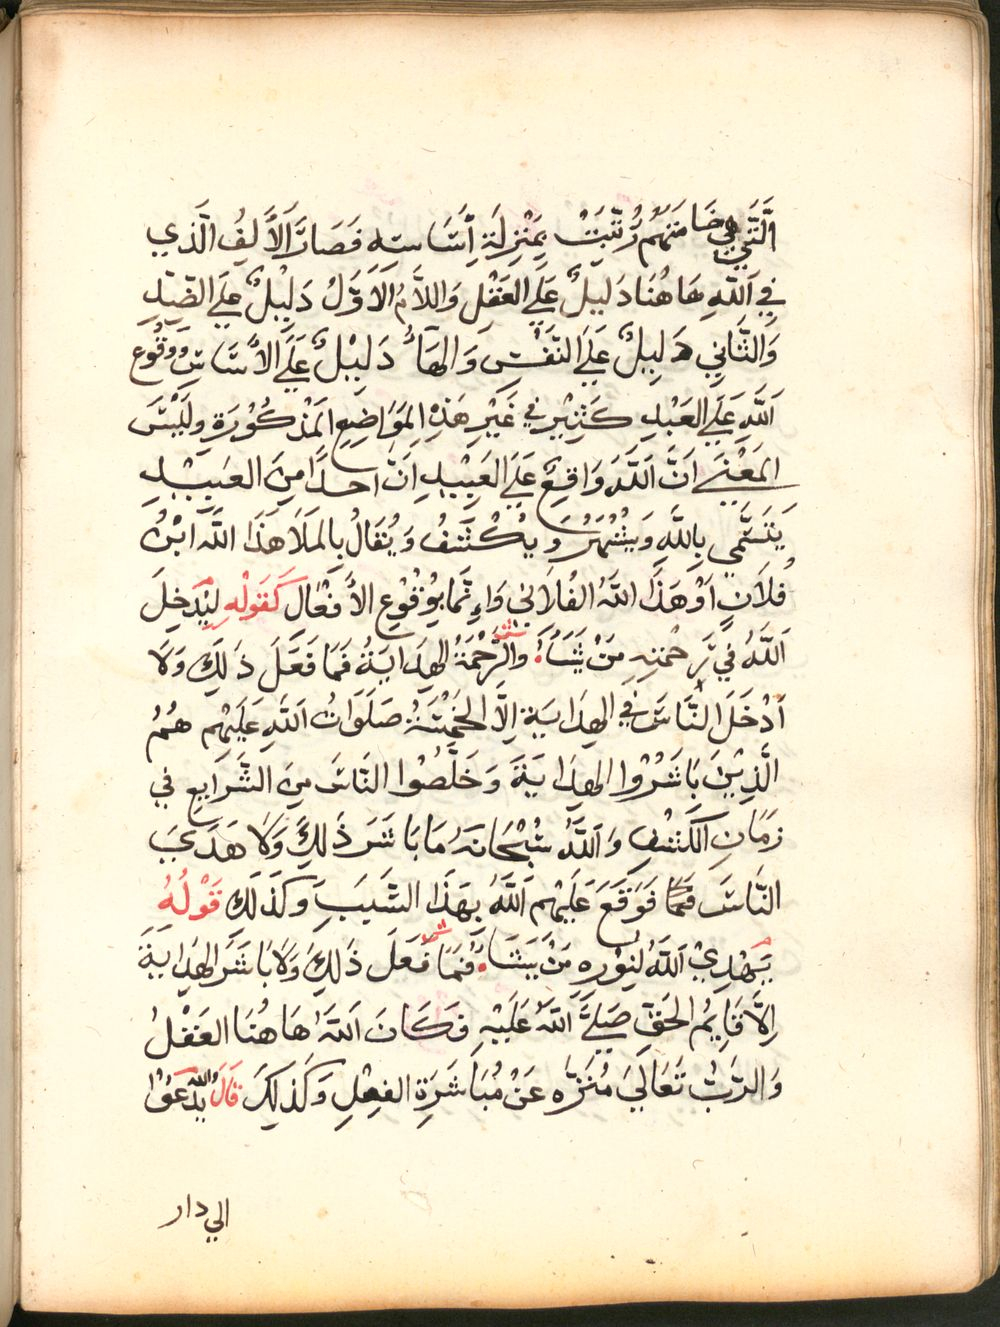 الَّتِي هِيَ خَامِنَهُم رُتِّبَتْ بِمَنْزِلَةِ أَسَاسِهِ فَصَارَ الأَلِفُ الَّذِي
فِي اَللهِ هَاهُنَا دَلِيلٌ عَلَي العَقْلِ وَاللاَّمُ الاَوَّلُ دَلِيْلٌ عَلَي الضِّدِ
وَالثَّانِي دَلِيلٌ عَلَي النَفْسِ وَالهَآءُ دَلِيْلٌ عَلَي الأَسَاسِ وَوُقُوع
اَللهِ عَلَي العَبْدِ كَثِيْرٌ فِي غَيْرِ هَذِهِ المَوَاضِعِ المَذكُوْرَةِ وَلَيْسَ
المَعْنَي اَنَّ اَللَّهَ وَاقِعٌ عَلَي العَبِيْدِ اَنَّ اَحَدًا مِنَ العَبِيْدِ
يَتَسَمَّي بِاللَّهِ وَيُشْهَرُ وَيُكْتَنَفُ وَيُقَالُ بِالمَلَا هَذَا اللَّهُ ابْنُ
فُلَانٍ اَوْ هَذَا اللهُ الفُلاَنِي وَاِنَّمَا يُوْقُوْعِ الأَفْعَالِ كَقَوْلِهِ لِيُدْخِلَ
اَللَّهُ فِي رَحْمَتِهِ مَنْ يَشَآءُ وَالرَّحْمَةُ الهِدَايَةُ فَمَا فَعَلَ ذَلِكَ وَلَا
اَدْخَلَ النَّاسَ فِي الهِدَايَةِ اِلاَّ الخَمْسَةُ صَلَوَاتُ اَللهِ عَلَيْهِم هُمُ
الَّذِيْنَ بَاشَرُوْا الهِدَايَةَ وَخَلَّصُوْا النَاسَ مِنَ الشَّرَايِعِ فِي
زَمَانِ الكَشْفِ وَاَللَّهُ سُبْحَانَهُ مَا بَاشَرَ ذَلِكَ وَلاَ هَدَي
النَّاسَ فَمَّا فَوَقَعَ عَلَيْهِم اَللَّهُ بِهَذَا السَّبَبِ وَكَذَلِكَ قَوْلُهُ
يَهْدِيْ اَللَّهُ لِنُوْرِهِ مَنْ يَشَآءُ فَمَا فَعَلَ ذَلِكَ وَلَا بَاشَرَ الهِدَايَةَ
اِلاَّ قَايِمُ الحَقِّ صَلَّي اَللَّهُ عَلَيْهِ فَكَانَ اَللَّهُ هَاهُنَا العَقْلُ
وَالرَبُّ تَعَالَي مُنَزَّه عَنْ مُبَاشَرَةِ الفِعْلِ وَكَذَلِكَ قَالَ وَاللهُ يَدْعُوْا
الي دار